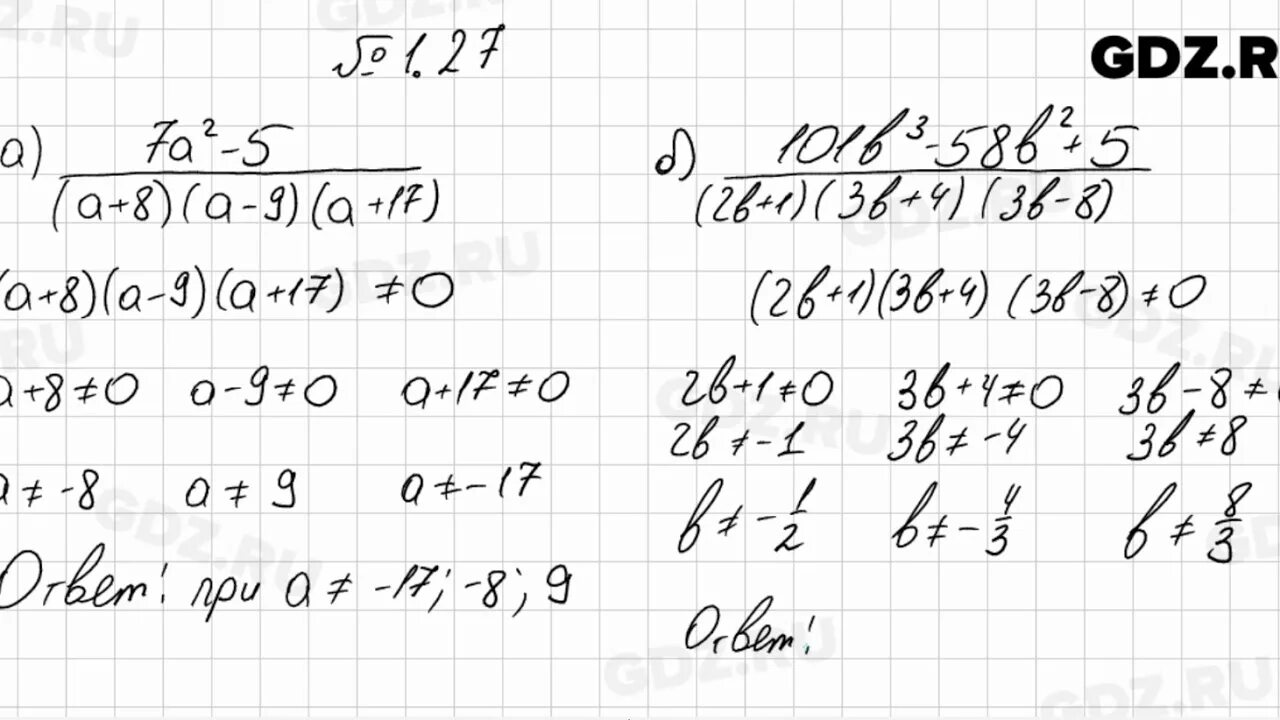 № 1.27
GDZ.R
а) (7a² - 5) / ((a+8)(a-9)(a+17))
(a+8)(a-9)(a+17) ≠ 0
a+8≠0 a-9≠0 a+17≠0
a ≠ -8 a ≠ 9 a ≠ -17
Ответ: при a ≠ -17; -8; 9
б) (101b³ - 58b² + 5) / ((2b+1)(3b+4)(3b-8))
(2b+1)(3b+4)(3b-8) ≠ 0
2b+1≠0 3b+4≠0 3b-8≠0
2b ≠ -1 3b ≠ -4 3b ≠ 8
b ≠ -1/2 b ≠ -4/3 b ≠ 8/3
Ответ: